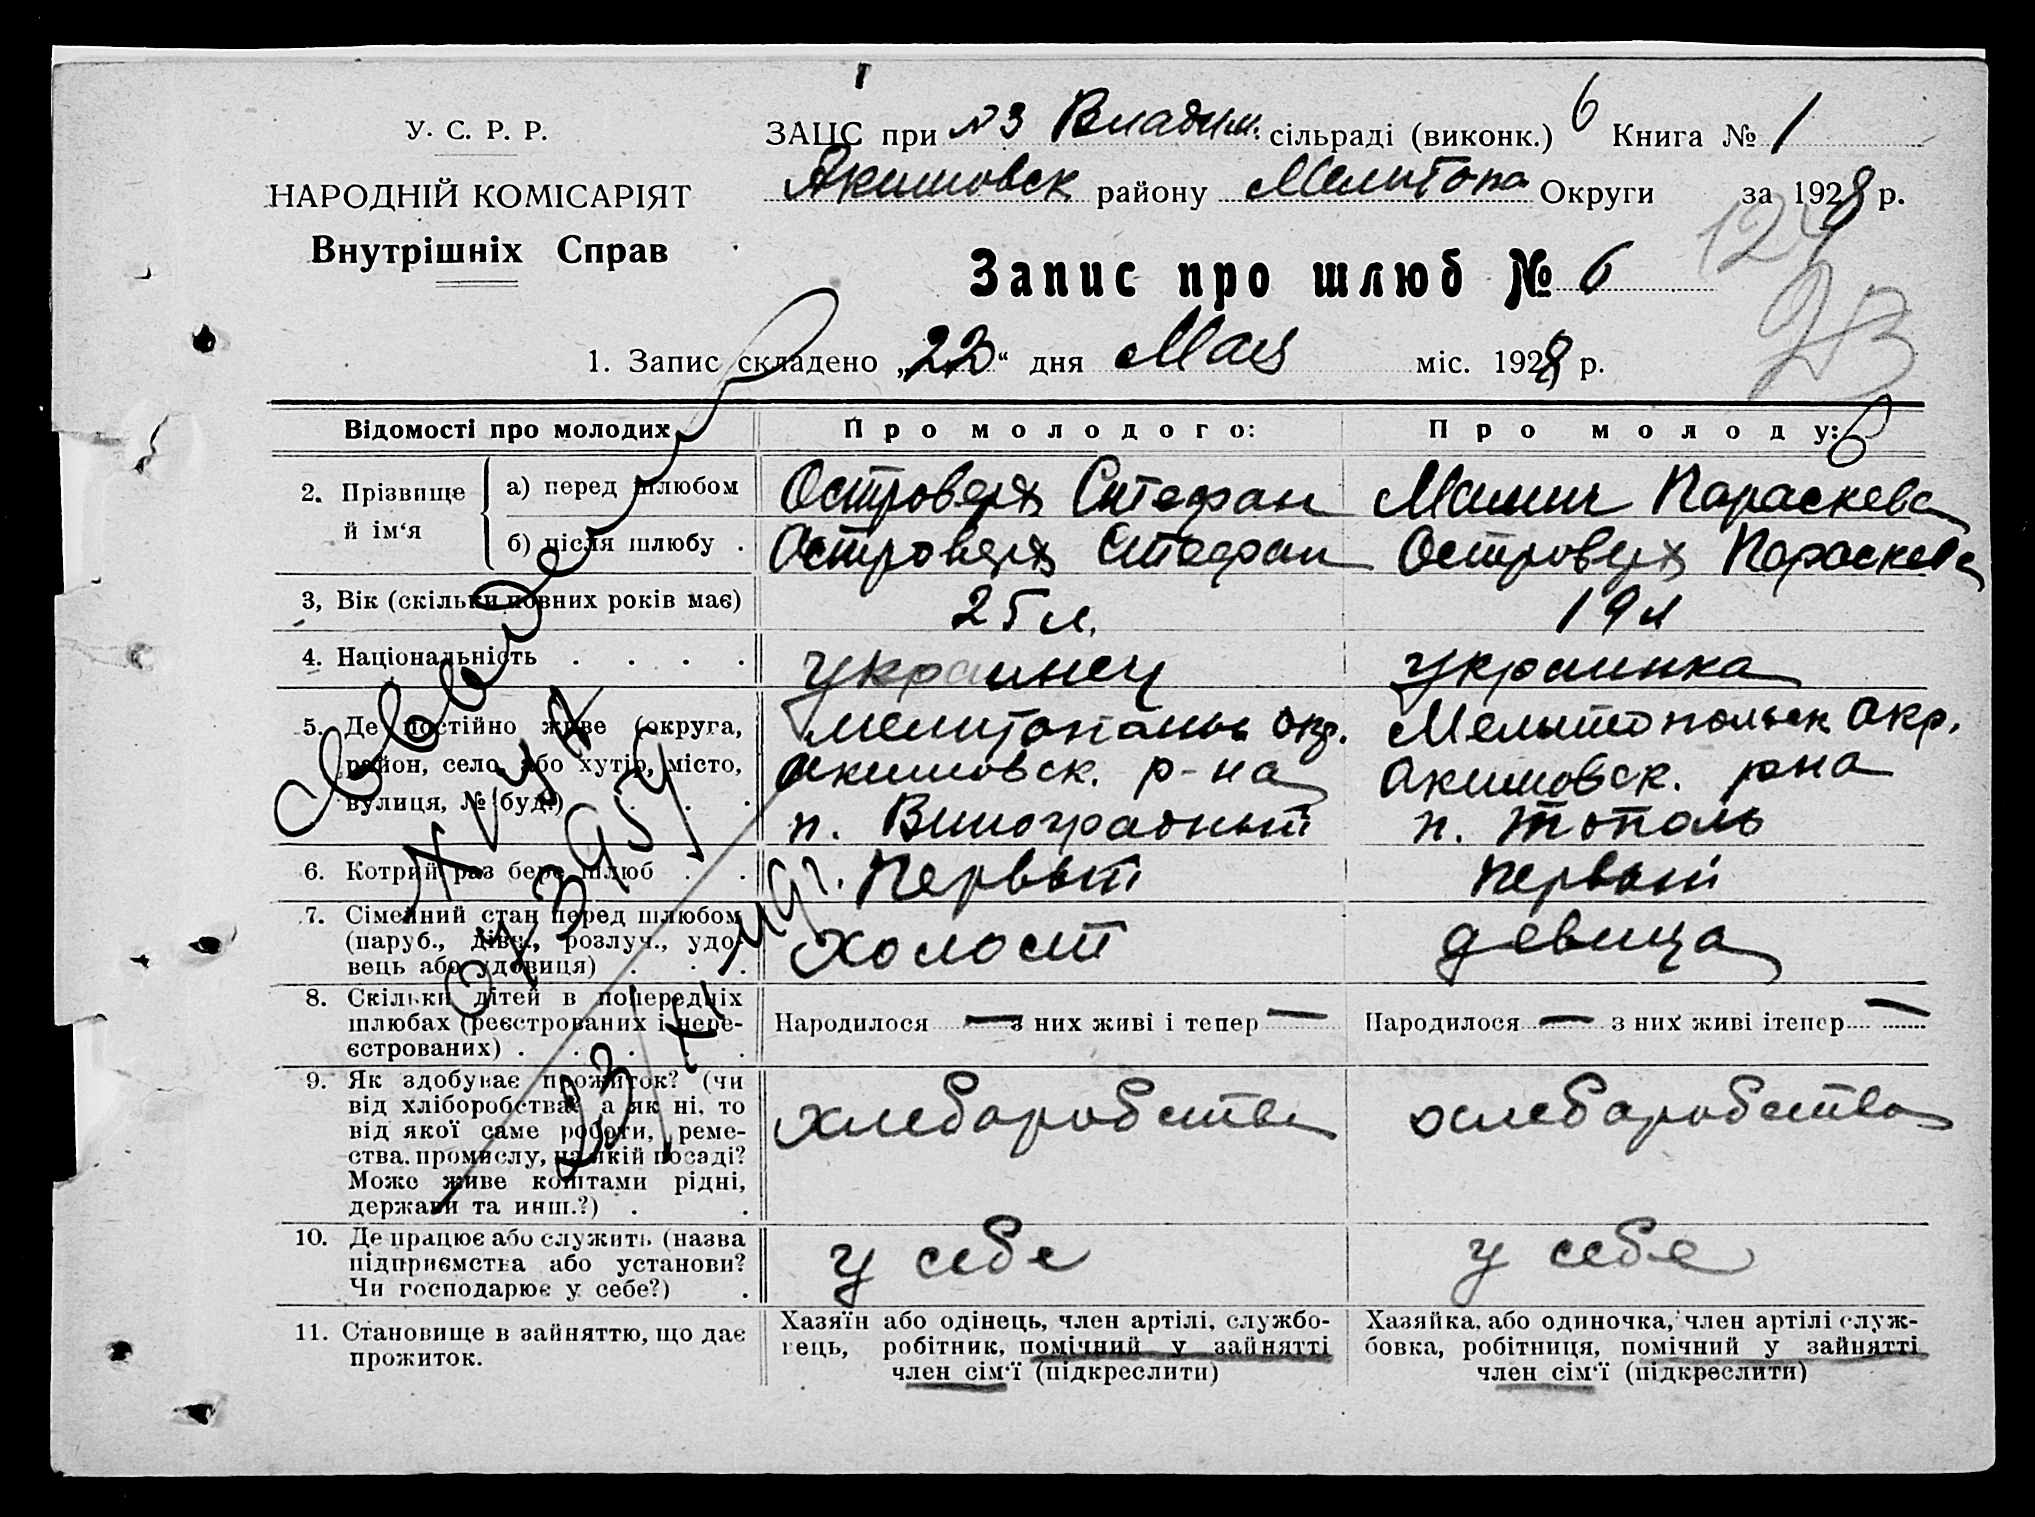 У. С. Р. Р.
НАРОДНІЙ КОМІСАРІЯТ
Внутрішніх Справ
ЗАЦС при №3 Владим. сільраді (виконк.) 6 Книга № 1
Якимовск району Мелитопо Округи за 1928 р.
Запис про шлюб № 6
1. Запис складено „22“ дня Мая міс. 1928 р.
Відомості про молодих
Про молодого:
Про молоду:
2. Прізвище й ім‘я
а) перед шлюбом
Островерх Стефан
Параскева
б) після шлюбу .
Островерх Стефан
Островерх Параскева
3, Вік (скільки повних років має)
25 л.
19 л
4. Національність . . . .
украинец
украинка
5. Де постійно живе (округа,
район, село або хутір, місто,
вулиця, № буд.) . . .
Мелитопольс окр.
акимовск. р-на
п. Виноградный
Мелитопольск окр.
акимовск. рна
п. Тополь
6. Котрий раз бере шлюб . .
Первый
Первый
7. Сімейний стан перед шлюбом
(паруб., дівч., розлуч., удо-
вець або удовиця) . . .
холост
девица
8. Скільки дітей в попередніх
шлюбах (реєстрованих і нере-
єстрованих) . . . . .
Народилося — з них живі і тепер —
Народилося — з них живі ітепер —
9. Як здобуває прожиток? (чи
від хліборобства? а як ні, то
від якої саме роботи, реме-
ства, промислу, на якій посаді?
Може живе коштами рідні,
держави та инш.?) . .
хлебаробства
хлебаробства
10. Де працює або служить (назва
підприємства або установи?
Чи господарює у себе?) .
у себе
у себя
11. Становище в зайняттю, що дає
прожиток.
Хазяїн або одінець, член артілі, службо-
вець, робітник, помічний у зайнятті
член сім‘ї (підкреслити)
Хазяйка, або одиночка, член артілі служ-
бовка, робітниця, помічний у зайнятті
член сім‘ї (підкреслити)